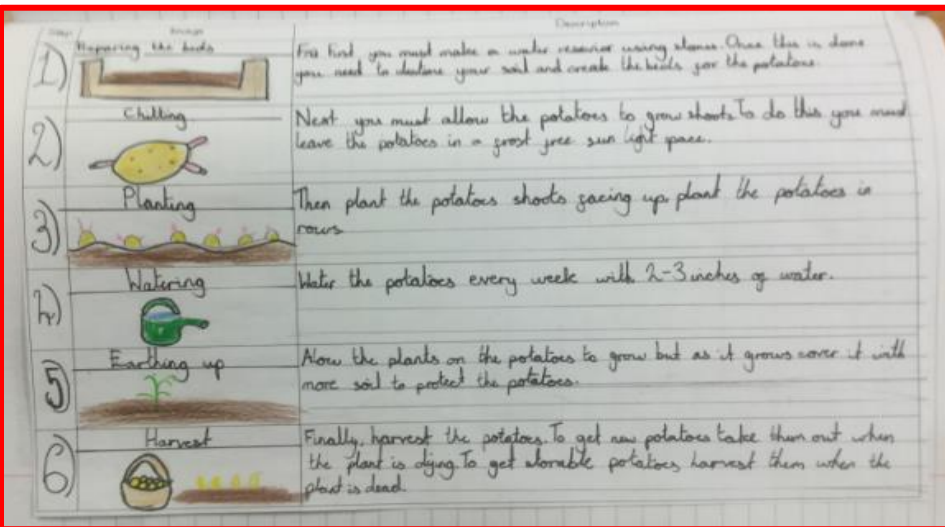 Step Image Description
1) Preparing the beds
Frs First, you must make a water reservior using stones. Once this is done
you need to destone your soil and create the beds for the potatoes.
2) Chitting
Next you must allow the potatoes to grow shoots. To do this you must
leave the potatoes in a frost free sun light space.
3) Planting
Then plant the potatoes shoots facing up, plant the potatoes in
rows.
4) Watering
Water the potatoes every week with 2-3 inches of water.
5) Earthing up
Alow the plants on the potatoes to grow but as it grows cover it with
more soil to protect the potatoes.
6) Harvest
Finally, harvest the potatoes. To get new potatoes take them out when
the plant is dying. To get storable potatoes harvest them when the
plant is dead.